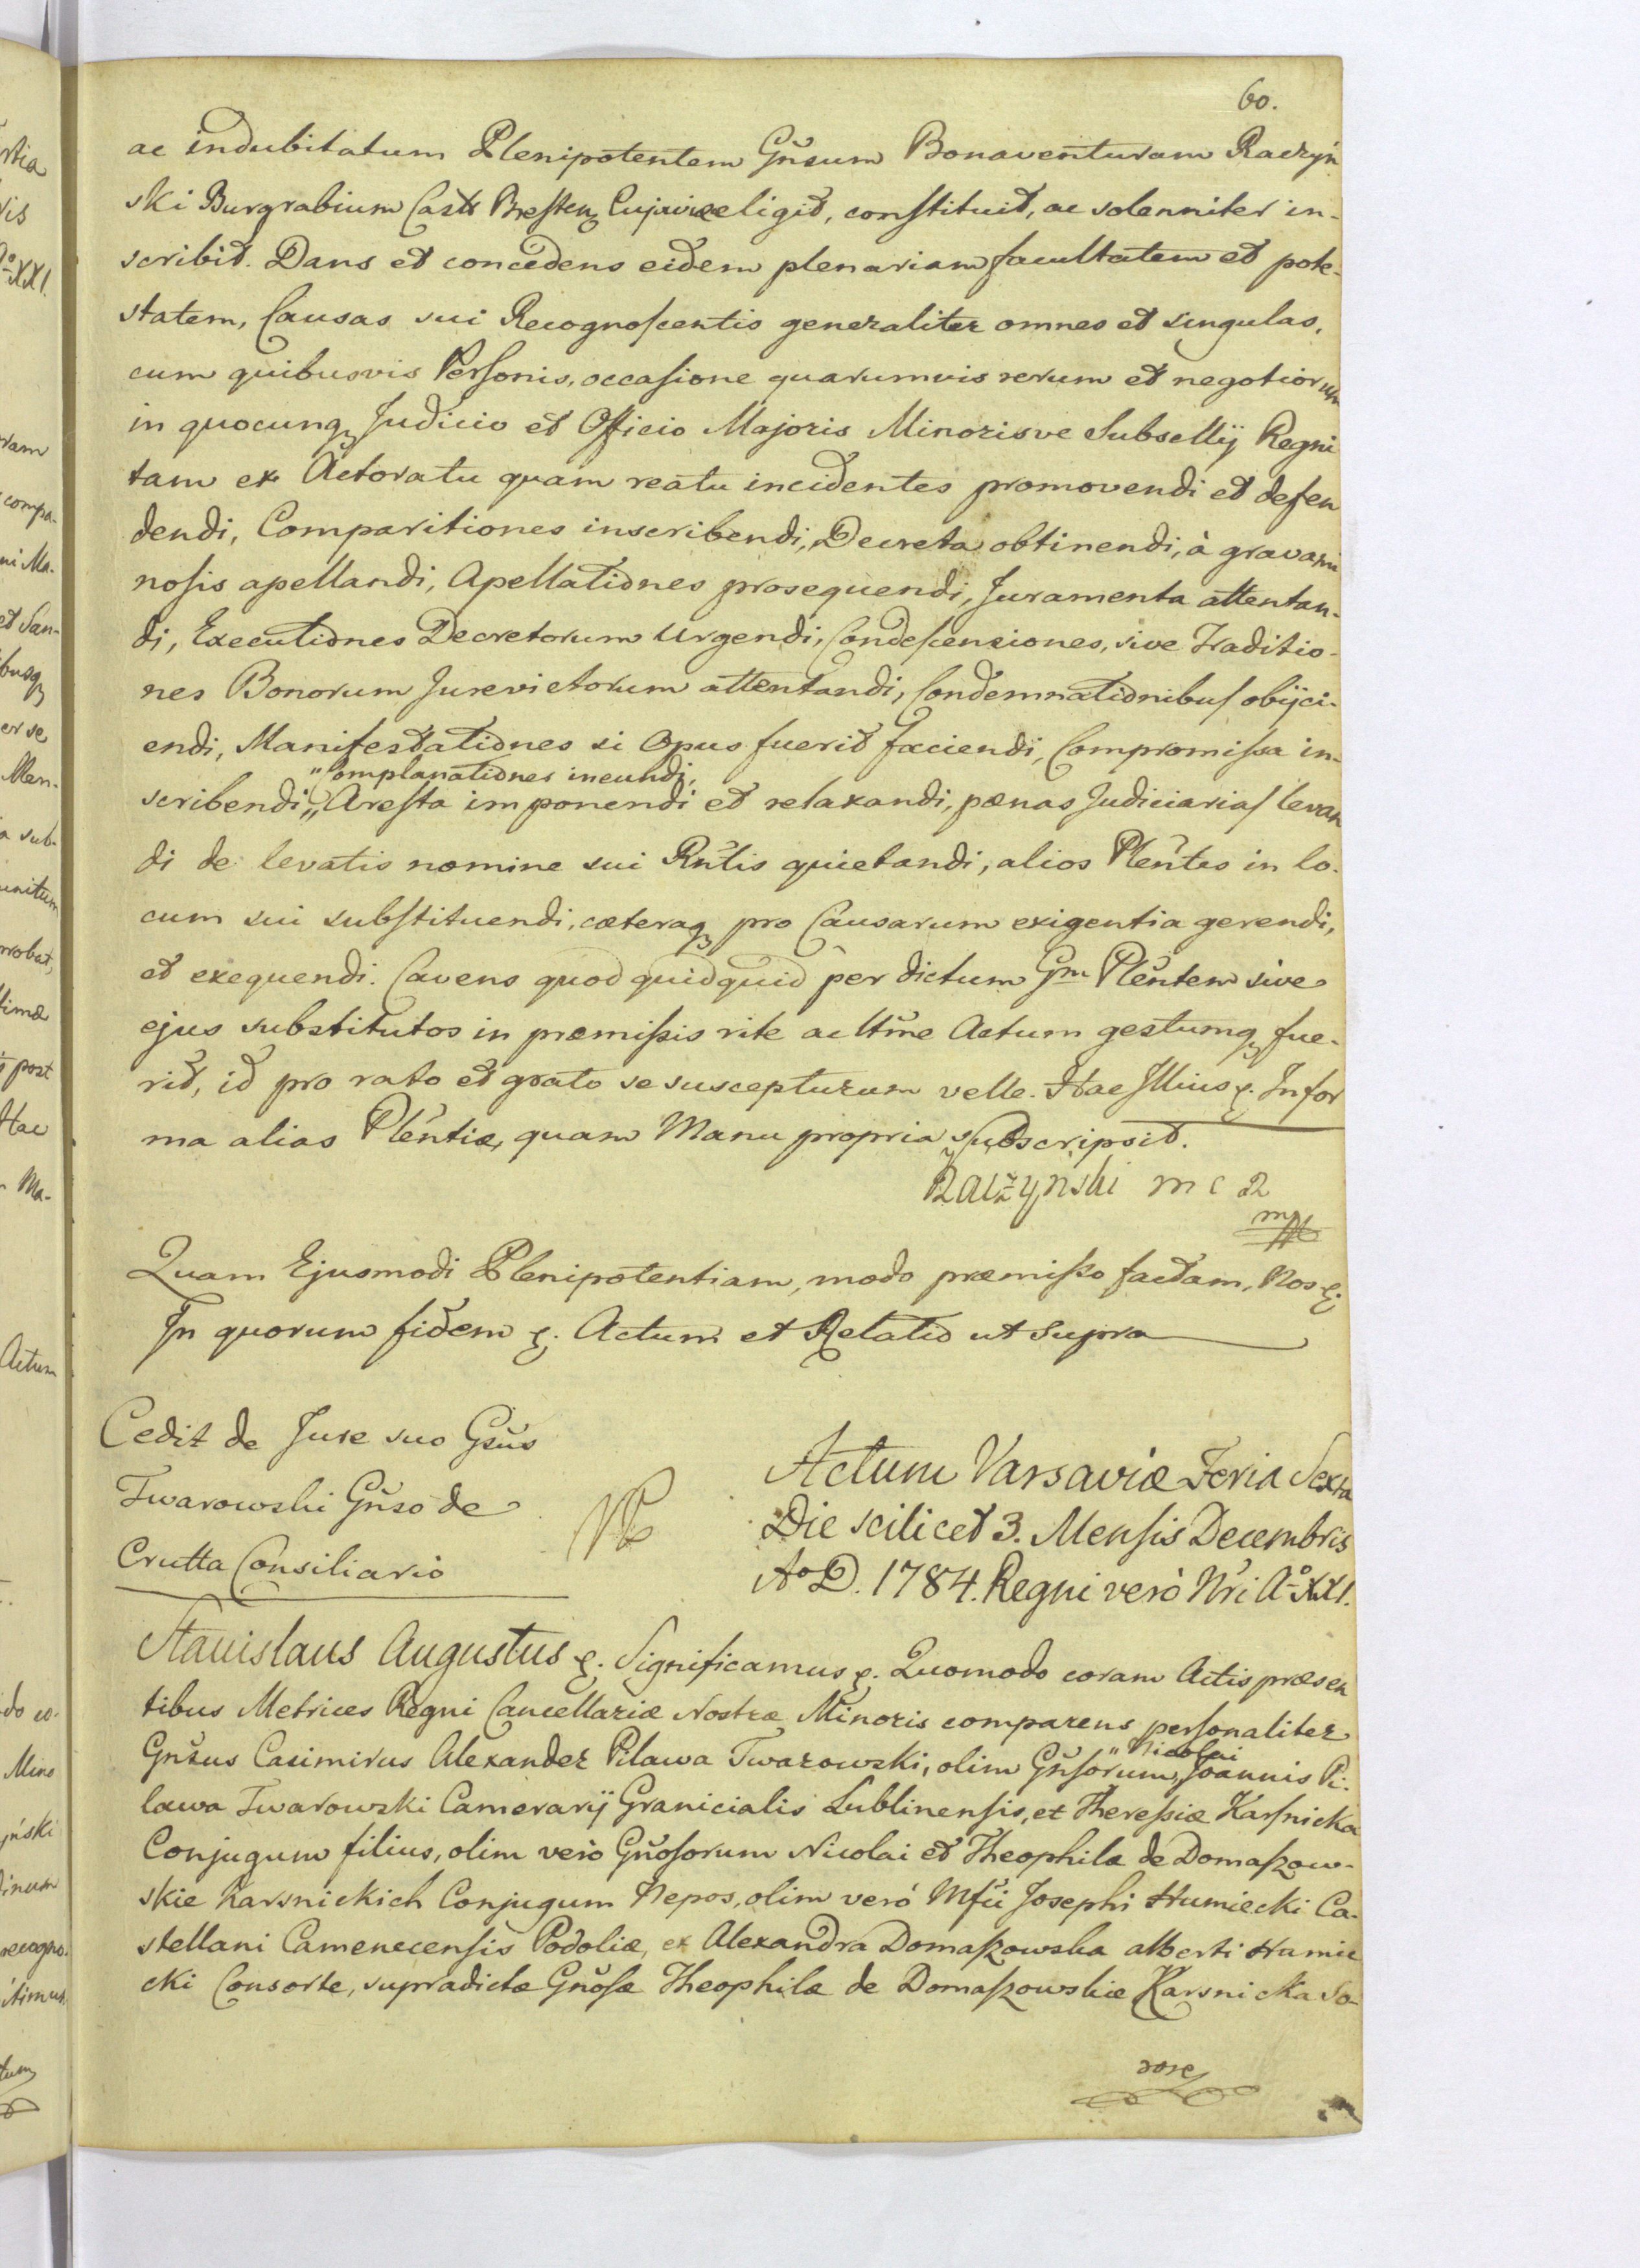 60.
ac indubitatum Plenipotentem Gnsum Bonaventuram Raczyń
ski Burgrabium Castr Bresten Cujaviæ eligit, constituit, ac solenniter in-
scribit. Dans et concedens eidem plenariam facultatem et pote-
statem, Causas sui Recognoscentis generaliter omnes et singulas,
cum quibusvis Personis, occasione quarumvis rerum et negotiorum
in quocunq Judicio et Officio Majoris Minorisve Subsellij Regni
tam ex Actoratu quam reatu incidentes promovendi et defen
dendi, Comparitiones inscribendi, Decreta obtinendi, à gravami
nosis apellandi, Apellationes prosequendi, Juramenta attentan-
di, Executiones Decretorum Urgendi, Condescensiones, sive Traditio-
nes Bonorum Jurevictorum attentandi, Condemnationibus obijci-
endi, Manifestationes si Opus fuerit faciendi, Compromissa in-
" Complanationes ineundi,
scribendi,,, Aresta imponendi et relaxandi, pænas Judiciarias levan
di de levatis nomine sui Rntis quietandi, alios Plentes in lo-
cum sui substituendi, cæteraq pro Causarum exigentia gerendi,
et exequendi. Cavens quod quidquid per dictum Gm Plentem sive
ejus substitutos in præmissis rite ac ltme Actum gestumq fue-
rit, id pro rato et grato se suscepturum velle. Hac Illius &. In for
ma alias Plentiæ, quam Manu propria subscripsit.
Raczyński m c R
mp
Quam Ejusmodi Plenipotentiam, modo præmisso factam, Nos &.
In quorum fidem &. Actum et Relatio ut Supra
Cedit de Jure suo Gsus
Twarowski Gnso de
Crutta Consiliario
Actum Varsaviæ Feria Sexta
Die scilicet 3. Mensis Decembris
Ao D. 1784. Regni verò Nri Ao XXI.
Stanislaus Augustus &. Significamus &. Quomodo coram Actis præsen
tibus Metrices Regni Cancellariæ Nostræ Minoris comparens personaliter
" Nicolai
Gnsus Casimirus Alexander Pilawa Twarowski, olim Gnsorum,, Joannis Pi-
lawa Twarowski Camerarij Granicialis Lublinensis, et Theressiæ Karsnicka
Conjugum filius, olim verò Gnosorum Nicolai et Theophilæ de Domaszow-
skie Karsnickich Conjugum Nepos, olim verò Mfci Josephi Humiecki Ca-
stellani Camenecensis Podoliæ, ex Alexandra Domaszowska alberti Humie
cki Consorte, supradictæ Gnosæ Theophilæ de Domaszowskie Karsnicka So-
rore